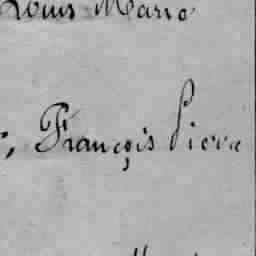 Louis Marie
; François Pierre